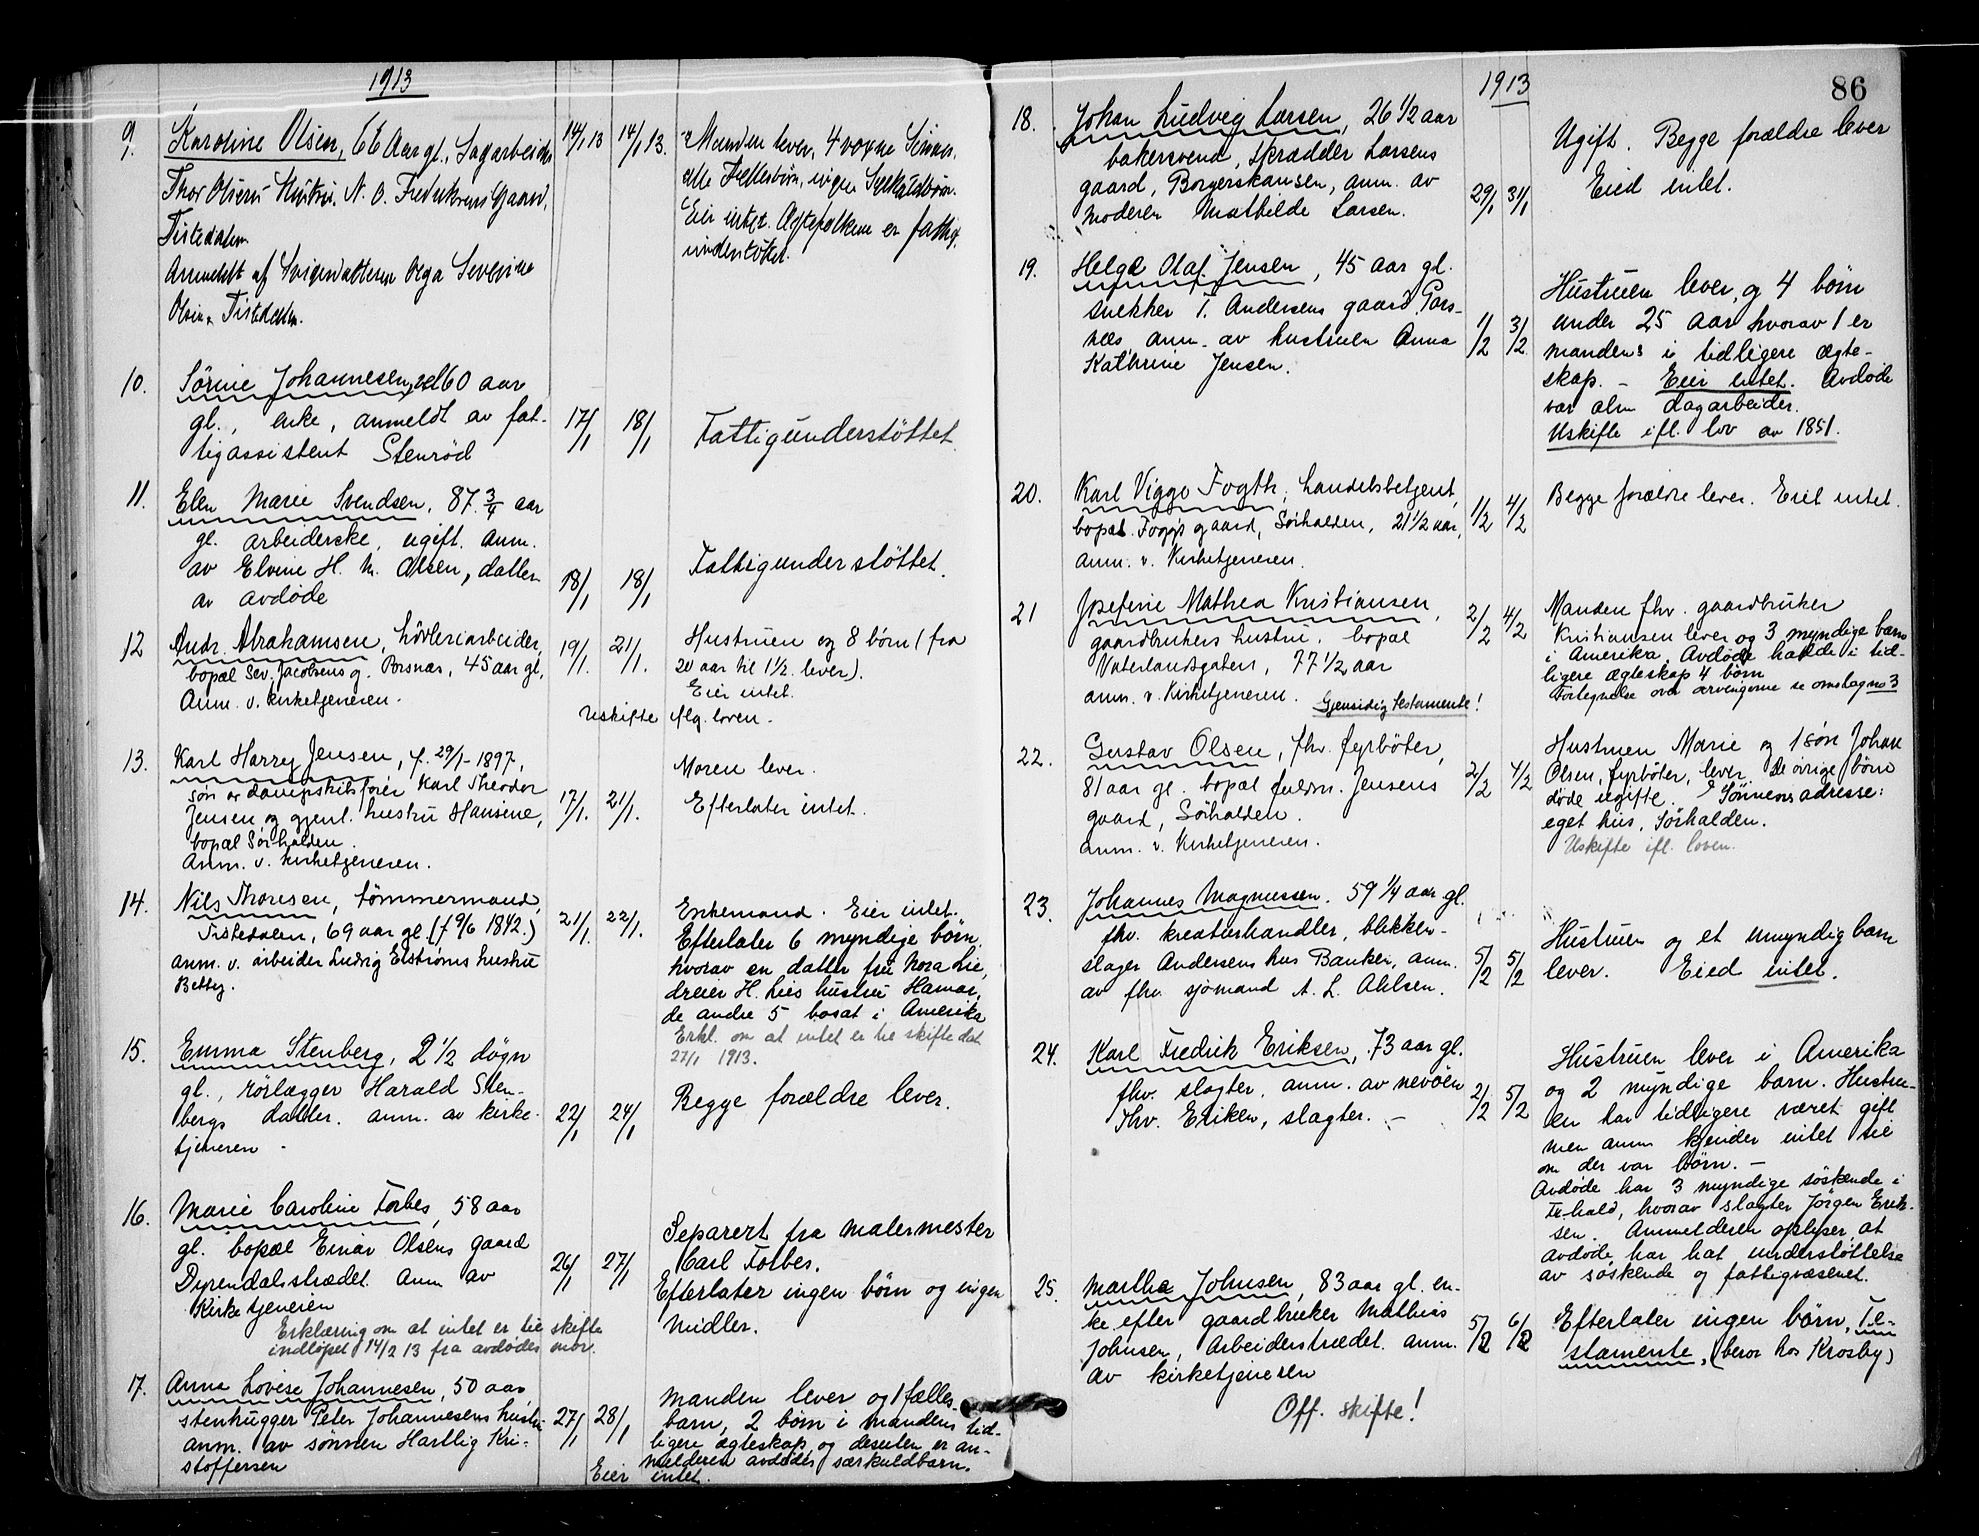 1913
9. Karoline Olsen, 66 Aar gl., Sagarbeider
Thor Olsens Hustru. N. O. Fredriksens Gaard,
Tistedalen.
Anmeldt af Svigerdatteren Olga Severine
Olsen, Tistedalen.
14/1 13 14/1 13.
Manden lever, 4 voxne Sönner,
alle Fællesbörn, ingen Særkuldsbörn.
Eier intet. Ægtefolkene er fattig
understöttet.
10. Sörine Johannesen, 60 aar
gl., enke, anmeldt av fat-
tigassistent Stenröd
17/1 18/1
Fattigunderstöttet
11. Elen Marie Svendsen, 87 3/4 aar
gl. arbeiderske, ugift. anm.
av Elvine H. M. Olsen, datter
av avdöde
18/1 18/1
Fattigunderstöttet.
12 Andr. Abrahamsen, hövleriarbeider,
bopæl Sev. Jacobsens g. Porsnæs, 45 aar gl,
Anm. v. kirketjeneren.
19/1. 21/1.
Hustruen og 8 börn (fra
20 aar til 1 1/2 lever).
Eier intet.
Uskifte flg. loven.
13. Karl Harry Jensen, f. 29/1-1897,
sön av dampskibsförer Karl Theodor
Jensen og gjenl. hustru Hansine,
bopæl Sörhalden.
Anm. v. kirketjeneren.
17/1. 21/1.
Moren lever.
Efterlater intet.
14. Nils Thoresen, tömmermand,
Tistedalen, 69 aar gl. (f 9/6 1842.)
anm. v. arbeider Ludvig Elströms hustru
Betty.
21/1. 22/1.
Enkemand. Eier intet.
Efterlater 6 myndige börn,
hvorav en datter fru Nora Lie,
dreier H. Lies hustru Hamar,
de andre 5 bosat i Amerika
Erkl. om at intet er til skifte dat
27/1 1913.
15. Emma Stenberg, 2 1/2 dögn
gl., rörlægger Harald Sten-
bergs datter. anm. av kirke-
tjeneren -
22/1 24/1
Begge forældre lever.
16. Marie Caroline Forbes, 58 aar
gl. bopæl Einar Olsens gaard
Dyrendalstrædet. Anm av
Kirketjeneren
26/1 27/1
Separert fra malermester
Carl Forbes.
Efterlater ingen börn og ingen
midler.
Erklæring om at intet er til skifte
indlöpet 14/2 13 fra avdödes mor.
17. Anna Lovise Johannesen, 50 aar,
stenhugger Peter Johannesens hustru
anm. av sönnen Hartvig Kri-
stoffersen
27/1 28/1
Manden lever og 1 fælles
barn, 2 börn i mandens tid-
ligere ægteskap og desuten er an-
melderen avdödes særkuldbarn.
Eier intet.
1913
86
18. Johan Ludvig Larsen, 26 1/2 aar
bakersvend, skrædder Larsens
gaard, Borgerskansen, anm. av
moderen Mathilde Larsen.
29/1 31/1
Ugift. Begge forældre lever
Eied intet.
19. Helge Olaf Jensen, 45 aar gl.
snekker T. Andersens gaard Pors-
næs anm. av hustruen Anna
Kathrine Jensen.
1/2 3/2
Hustruen lever, og 4 börn
under 25 aar hvorav 1 er
mandens i tidligere ægte-
skap. - Eier intet. Avdöde
var alm dagarbeider.
Uskifte ifl. lov av 1851.
20. Karl Viggo Fogth, handelsbetjent,
bopæl Foggs gaard, Sörhalden, 21 1/2 aar,
anm. v. Kirketjeneren.
1/2 4/2
Begge forældre lever. Eiet intet.
21 Josefine Mathea Kristiansen,
gaardbrukers hustru, bopæl
Vaterlandsgaten, 77 1/2 aar
anm. v. Kirketjeneren. Gjensidig testamente!
2/2 4/2
Manden fhv. gaardbruker
Kristiansen lever og 3 myndige barn
i Amerika. Avdöde hadde i tid-
ligere ægteskap 4 börn
Fortegnelse over arvingerne se omslag no 3
22. Gustav Olsen, fhv. fyrböter,
81 aar gl. bopæl fuldm. Jensens
gaard, Sörhalden.
anm. v. Kirketjeneren.
2/2 4/2
Hustruen Marie og 1 sön Johan
Olsen, fyrböter, lever. De övrige börn
döde ugifte. Sönnens adresse:
eget hus, Sörhalden.
Uskifte ifl. loven.
23. Johannes Magnussen. 59 1/4 aar gl.
fhv. kreaturhandler, blikken-
slager Andersens hus Banken, anm.
av fhv. sjömand A. L. Ahlsen.
5/2 5/2
Hustruen og et umyndig barn
lever. Eied intet.
24. Karl Fredrik Eriksen, 73 aar gl.
fhv. slagter. anm. av nevöen
Thv. Eriksen, slagter. -
2/2 5/2
Hustruen lever i Amerika
og 2 myndige barn. Hustru-
en har tidligere været gift
men anm kjender intet til
om der var börn. -
Avdöde har 3 myndige söskende i
Fr.hald, hvorav slagter Jörgen Erik-
sen. Anmelderen oplyser at
avdöde har hat understöttelse
av söskende og fattigvæsenet.
25. Marthe Johnsen, 83 aar gl. en-
ke efter gaardbruker Mathias
Johnsen, Arbeiderstrædet. anm.
av kirketjeneren
5/2 6/2
Efterlater ingen börn, Te-
stamente, (beror hos Krosby)
Off. skifte!